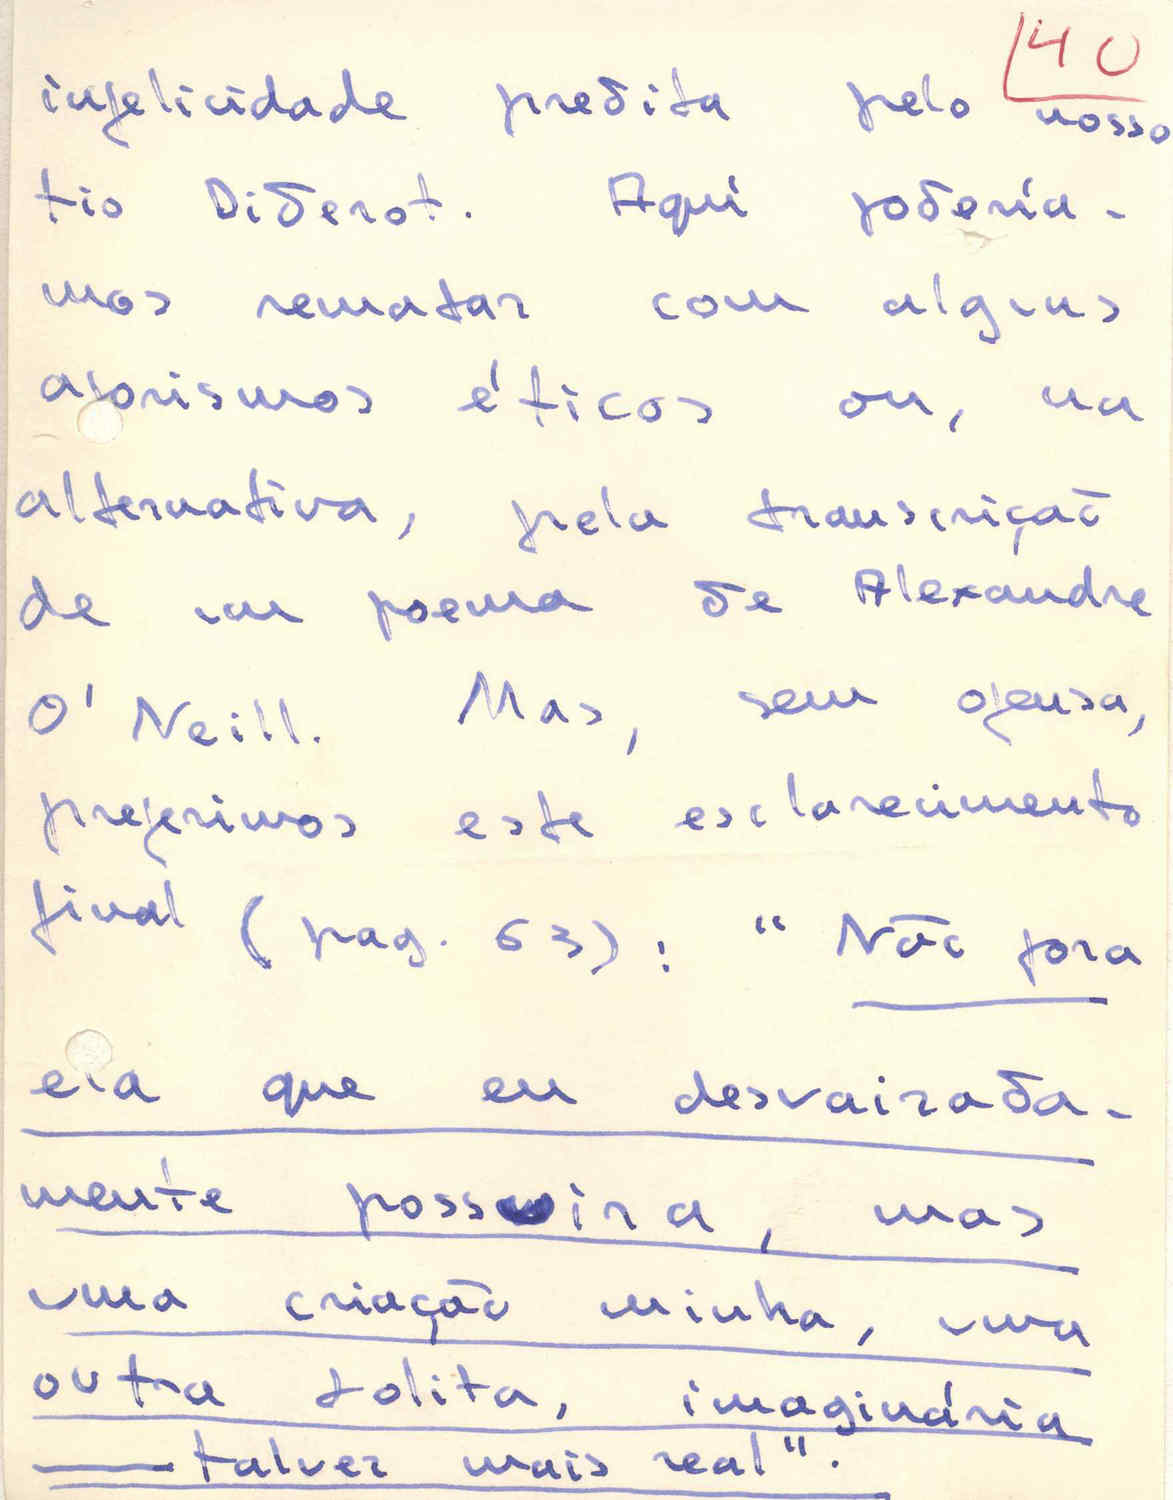 40
infelicidade predita pelo nosso
tio Diderot. Aqui podería-
mos rematar com alguns
aforismos éticos ou, na
alternativa, pela transcrição
de um poema de Alexandre
O'Neill. Mas, sem ofensa,
preferimos este esclarecimento
final (pag. 63): "Não fora
ela que eu desvairada-
mente possuira, mas
uma criação minha, uma
outra Lolita, imaginária
— talvez mais real".